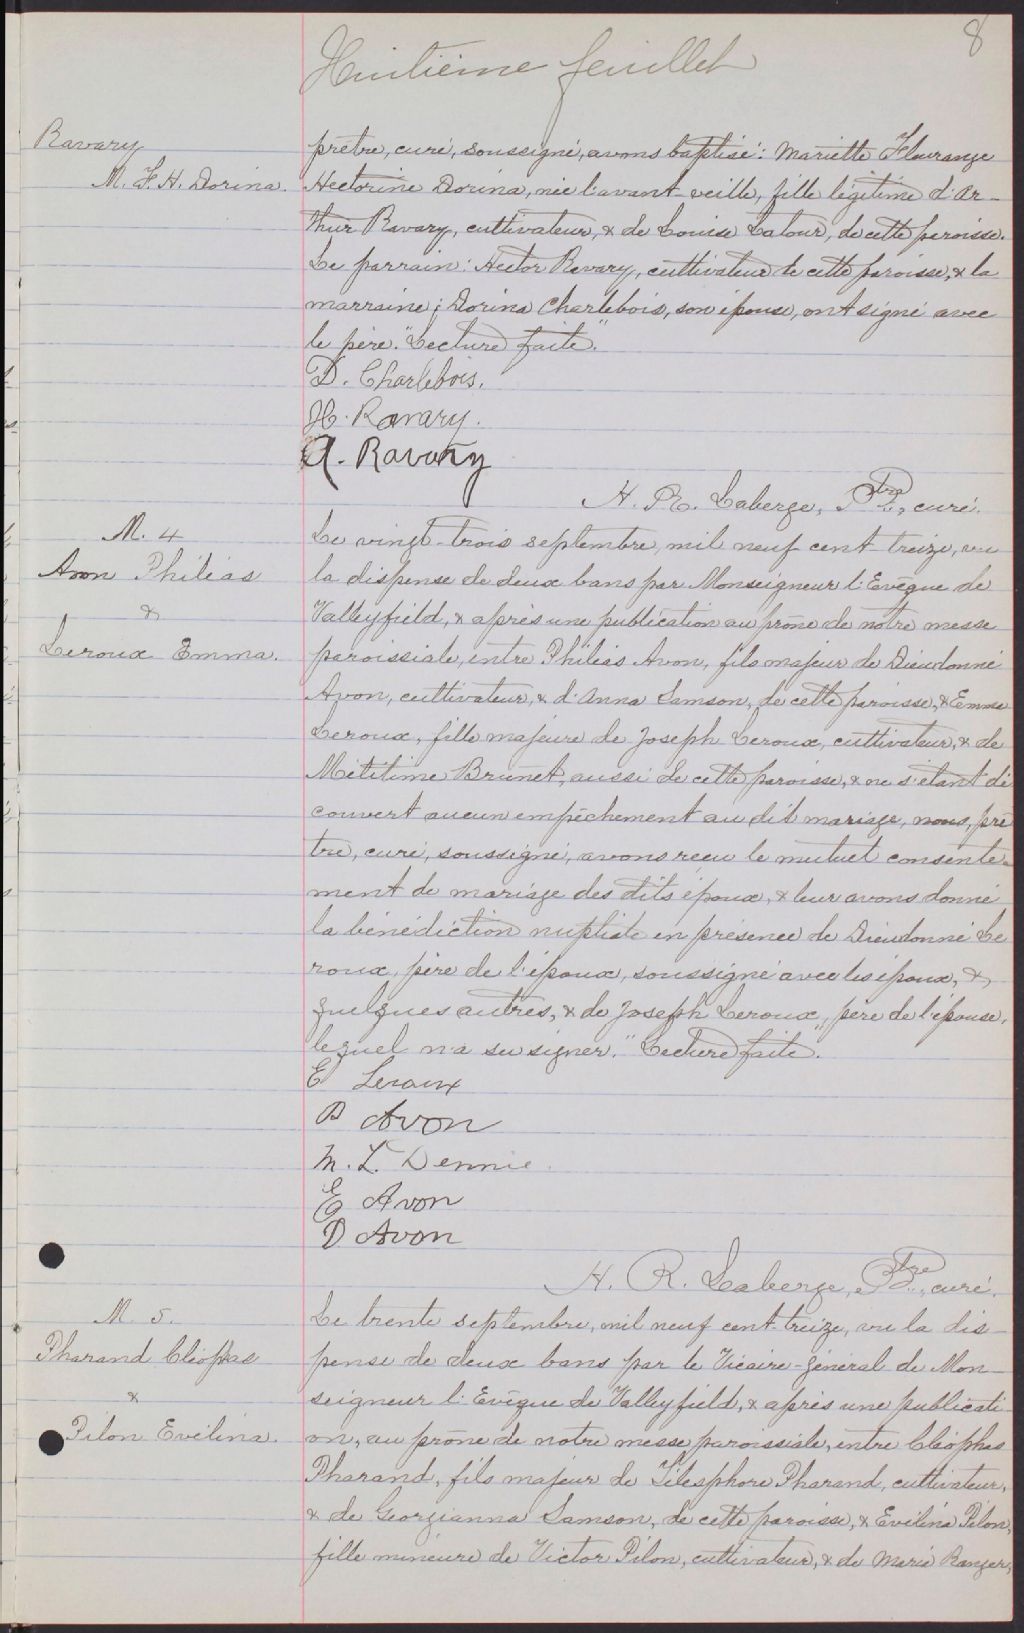 8
Huitième feuillet
Ravary
M. F. H. Dorina.
prêtre, curé, soussigné, avons baptisé: Mariette Flourange
Hectorine Dorina, née l'avant-veille, fille légitime d'Ar-
thur Ravary, cultivateur, & de Louise Latour, de cette paroisse.
Le parrain: Hector Ravary, cultivateur de cette paroisse, & la
marraine; Dorina Charlebois, son épouse, ont signé avec
le père. "Lecture faite."
D. Charlebois.
H. Ravary.
A. Ravary
H. R. Laberge, Ptre, curé.
M. 4
Avon Philias
&
Leroux Emma.
Le vingt-trois septembre, mil neuf cent-treize, vu
la dispense de deux bans par Monseigneur l'Evêque de
Valleyfield, & après une publication au prone de notre messe
paroissiale, entre Philias Avon, fils majeur de Dieudonné
Avon, cultivateur, & d'Anna Samson, de cette paroisse, & Emma
Leroux, fille majeure de Joseph Leroux, cultivateur, & de
Brunet, aussi de cette paroisse, & ne s'étant dé
couvert aucun empêchement au dit mariage, nous, prê
tre, curé, soussigné, avons reçu le mutuel consente-
ment de mariage des dits époux, & leur avons donné
la bénédiction nuptiale en présence de Dieudonné Le
roux, père de l'époux, soussigné avec les époux, &
quelques autres, & de Joseph Leroux, père de l'épouse,
lequel n'a su signer. "Lecture faite".
E Leroux
P Avon
M. L. Dennie.
E Avon
D Avon
H. R. Laberge, Ptre, curé.
M. 5.
Pharand Cléophas
&
Pilon Evélina.
Le trente septembre, mil neuf cent-treize, vu la dis-
pense de deux bans par le Vicaire-général de Mon-
seigneur l'Evêque de Valleyfield, & après une publicati-
on, au prône de notre messe paroissiale, entre Cléophas
Pharand, fils majeur de Télesphore Pharand, cultivateur,
& de Georgianna Samson, de cette paroisse, & Evélina Pilon,
fille mineure de Victor Pilon, cultivateur, & de Marie Ranger,